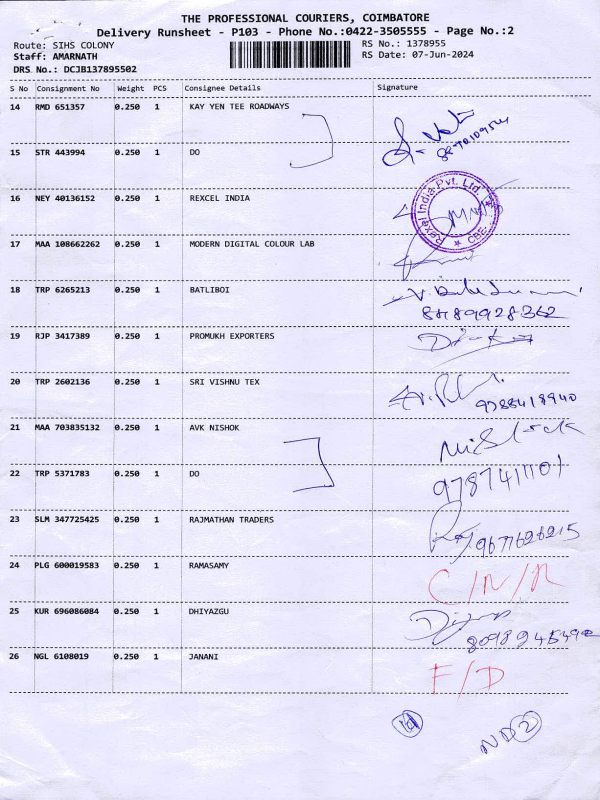 THE PROFESSIONAL COURIERS, COIMBATORE
Delivery Runsheet - P103 - Phone No.:0422-3505555 - Page No.:2
Route: SIHS COLONY RS No.: 1378955
Staff: AMARNATH RS Date: 07-Jun-2024
DRS No.: DCJB137895502
S No Consignment No Weight PCS Consignee Details Signature
14 RMD 651357 0.250 1 KAY YEN TEE ROADWAYS
15 STR 443994 0.250 1 DO
16 NEY 40136152 0.250 1 REXCEL INDIA
Rexel India Pvt. Ltd. CBE-
17 MAA 108662262 0.250 1 MODERN DIGITAL COLOUR LAB
18 TRP 6265213 0.250 1 BATLIBOI
8489928362
19 RJP 3417389 0.250 1 PROMUKH EXPORTERS
20 TRP 2602136 0.250 1 SRI VISHNU TEX
9788418940
21 MAA 703835132 0.250 1 AVK NISHOK
22 TRP 5371783 0.250 1 DO
23 SLM 347725425 0.250 1 RAJMATHAN TRADERS
9677626215
24 PLG 600019583 0.250 1 RAMASAMY C/N/R
25 KUR 696086084 0.250 1 DHIYAZGU
26 NGL 6108019 0.250 1 JANANI F/D
ND 2